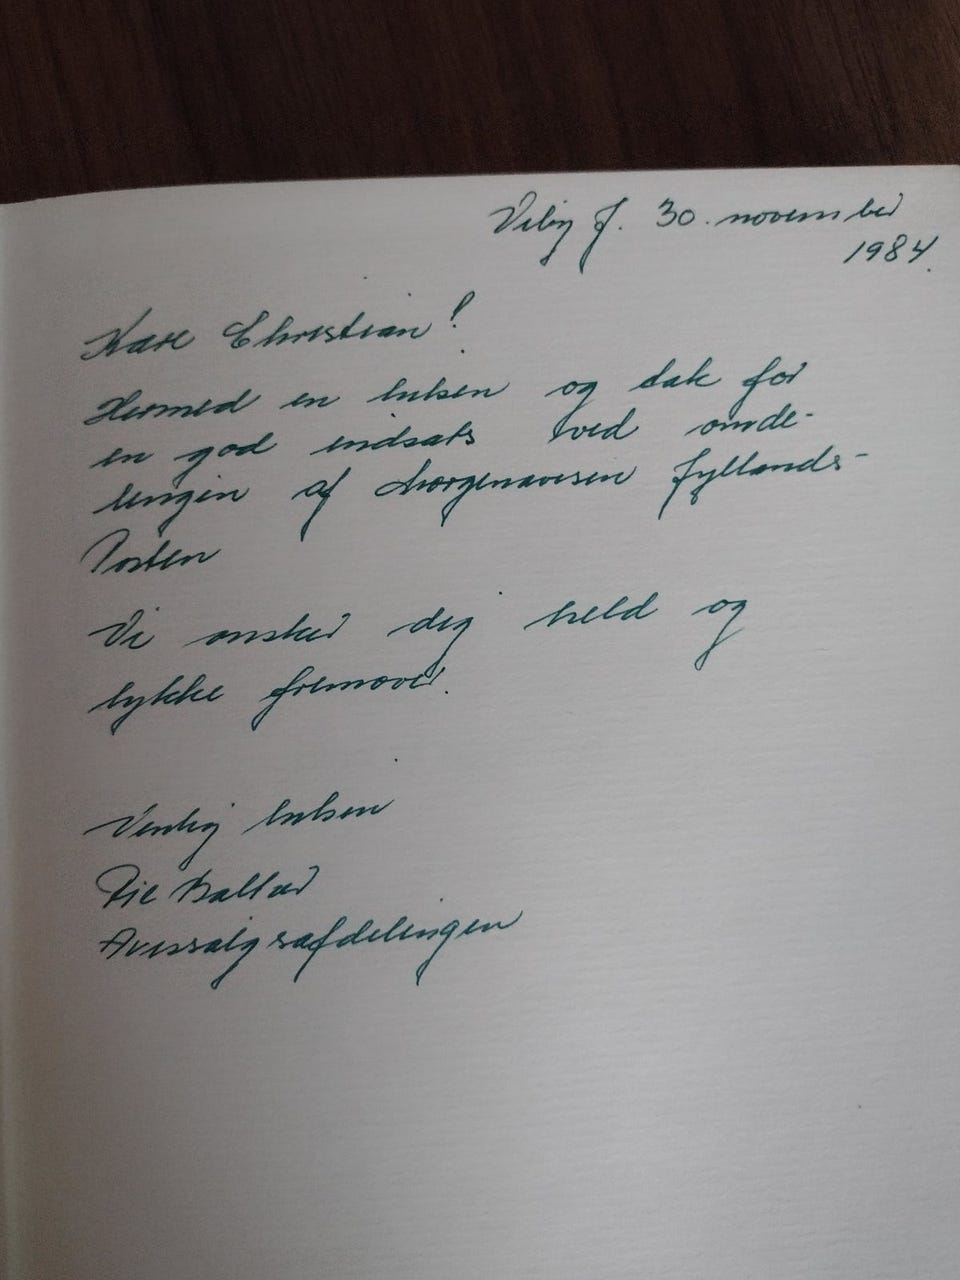 Viby J. 30. november
1984.
Kære Christian!
Hermed en hilsen og tak for
en god indsats ved omde-
lingen af Morgenavisen Jyllands-
Posten
Vi ønsker dig held og
lykke fremover.
Venlig hilsen
Pie Balter
Avissalgsafdelingen